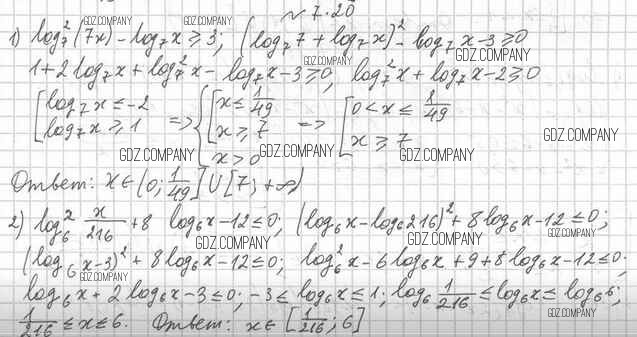 № 7.20
1) log₇²(7x) - log₇x ≥ 3; (log₇7 + log₇x)² - log₇x - 3 ≥ 0
1 + 2log₇x + log₇²x - log₇x - 3 ≥ 0, log₇²x + log₇x - 2 ≥ 0
[log₇x ≤ -2 [x ≤ 1/49 [0 < x ≤ 1/49
[log₇x ≥ 1 => {x ≥ 7 => [x ≥ 7
x > 0
Ответ: x ∈ (0; 1/49] ∪ [7; +∞)
2) log₆² x/216 + 8 log₆x - 12 ≤ 0; (log₆x - log₆216)² + 8log₆x - 12 ≤ 0;
(log₆x - 3)² + 8log₆x - 12 ≤ 0; log₆²x - 6log₆x + 9 + 8log₆x - 12 ≤ 0;
log₆x + 2log₆x - 3 ≤ 0; -3 ≤ log₆x ≤ 1; log₆ 1/216 ≤ log₆x ≤ log₆6;
1/216 ≤ x ≤ 6. Ответ: x ∈ [1/216; 6]
GDZ.COMPANY
GDZ.COMPANY
GDZ.COMPANY
GDZ.COMPANY
GDZ.COMPANY
GDZ.COMPANY
GDZ.COMPANY
GDZ.COMPANY
GDZ.COMPANY
GDZ.COMPANY
GDZ.COMPANY
GDZ.COMPANY
GDZ.COMPANY